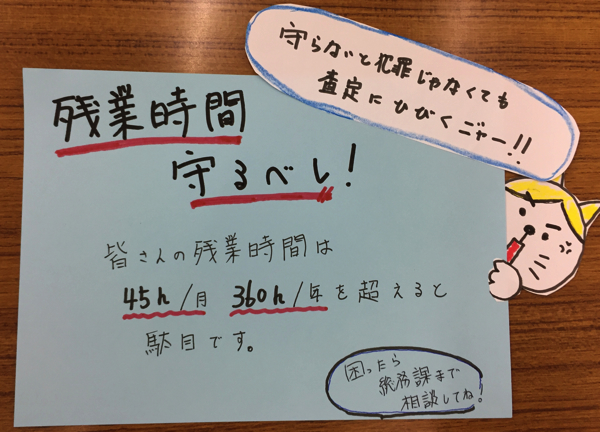 守らないと犯罪じゃなくても
査定にひびくニャー!!
残業時間
守るべし!
皆さんの残業時間は
45h/月 360h/年を超えると
駄目です。
困ったら
総務課まで
相談してね!